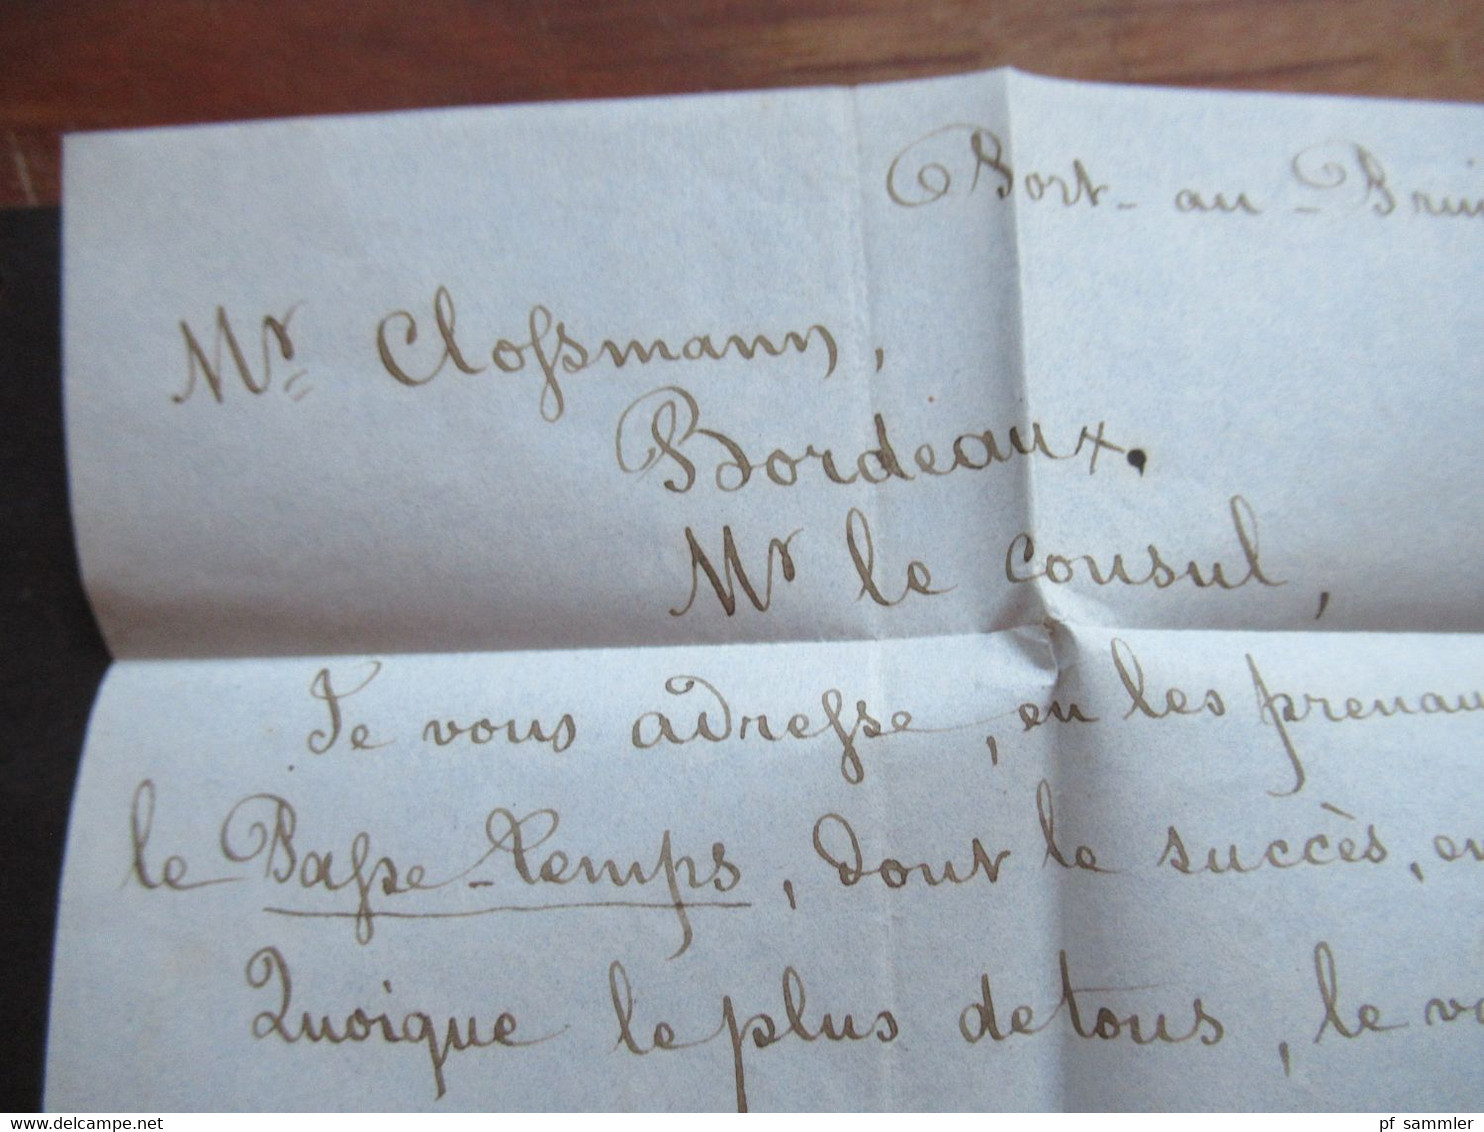 Port-au-Prin
Mr Clossmann,
Bordeaux.
Mr le Consul,
Je vous adresse, en les prenan
le Passe-Temps, dont le succès, en
Quoique le plus de tous, le v
pf sammler